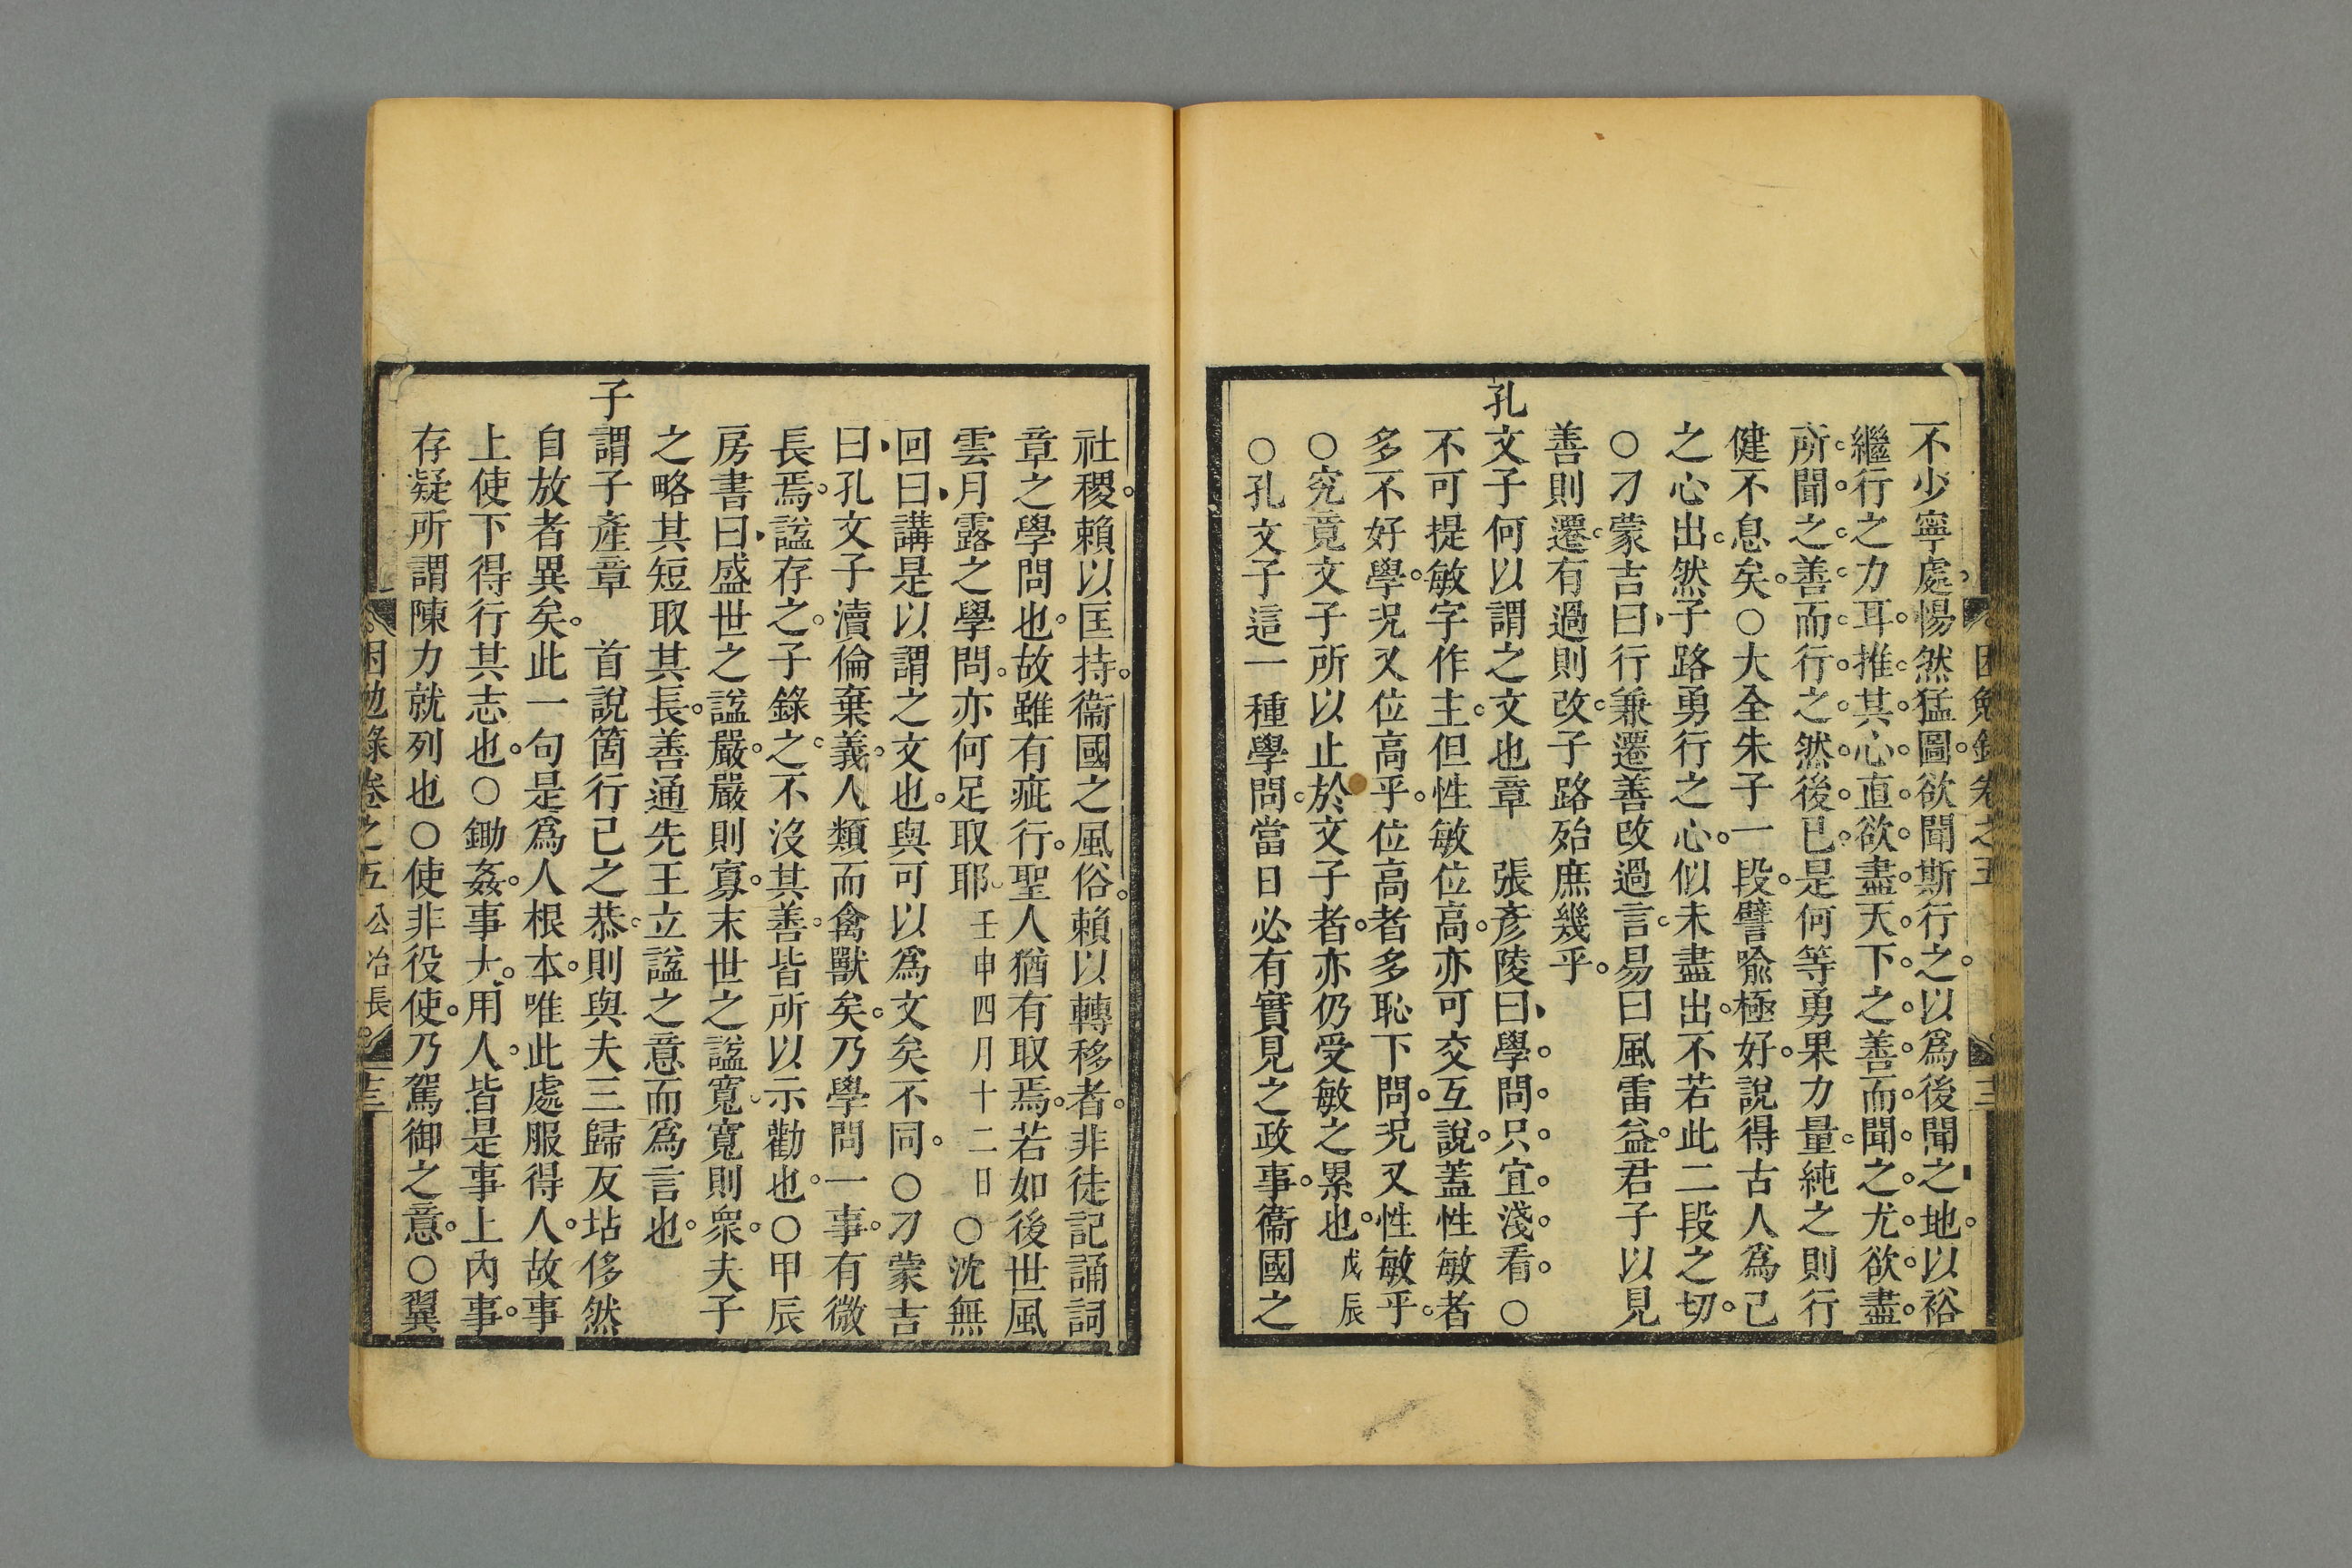 不少寧處惕然猛圖欲聞斯行之以爲後聞之地以裕
繼行之力耳推其心直欲盡天下之善而聞之尤欲盡
所聞之善而行之然後已是何等勇果力量純之則行
健不息矣○大全朱子一段譬喩極好說得古人爲己
之心出然子路勇行之心似未盡出不若此二段之切
○刁蒙吉曰行兼遷善改過言易曰風雷益君子以見
善則遷有過則改子路殆庶幾乎
孔文子何以謂之文也章　張彥陵曰學問只宜淺看○
不可提敏字作主但性敏位高亦可交互說蓋性敏者
多不好學況又位高乎位高者多恥下問況又性敏乎
○究竟文子所以止於文子者亦仍受敏之累也戊辰
○孔文子這一種學問當日必有實見之政事衞國之
社稷賴以匡持衞國之風俗賴以轉移者非徒記誦詞
章之學問也故雖有疵行聖人猶有取焉若如後世風
雲月露之學問亦何足取耶壬申四月十二日○沈無
回曰講是以謂之文也與可以爲文矣不同○刁蒙吉
曰孔文子瀆倫棄義人類而禽獸矣乃學問一事有微
長焉諡存之子錄之不沒其善皆所以示勸也○甲辰
房書曰盛世之諡嚴嚴則寡末世之諡寬寬則衆夫子
之略其短取其長善通先王立諡之意而爲言也
子謂子產章　首說箇行己之恭則與夫三歸反坫侈然
自放者異矣此一句是爲人根本唯此處服得人故事
上使下得行其志也○鋤姦事大用人皆是事上內事
存凝所謂陳力就列也○使非役使乃駕御之意○翼
困勉錄卷之五　公冶長　三